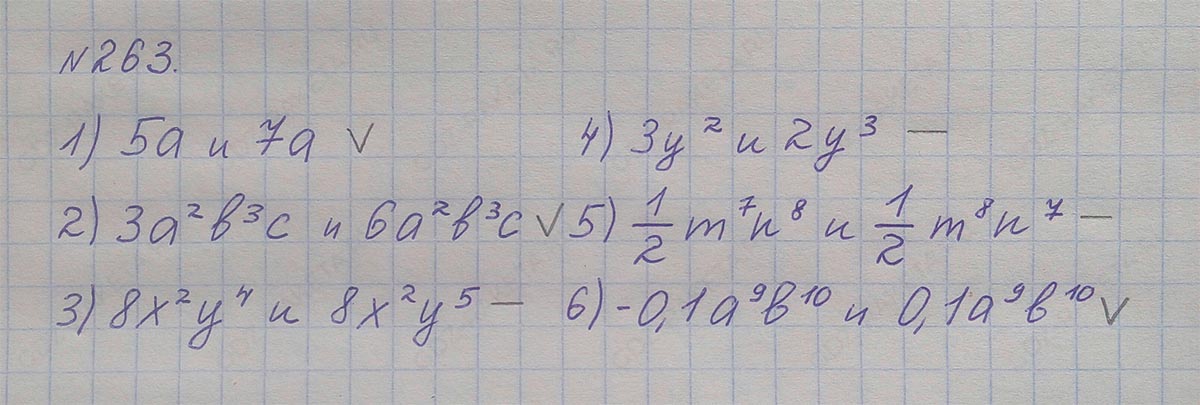 N263.
1) 5a и 7a ∨ 4) 3y² и 2y³ —
2) 3a²b³c и 6a²b³c ∨ 5) 1/2 m⁷n⁸ и 1/2 m⁸n⁷ —
3) 8x²y⁴ и 8x²y⁵ — 6) -0,1a⁹b¹⁰ и 0,1a⁹b¹⁰ ∨